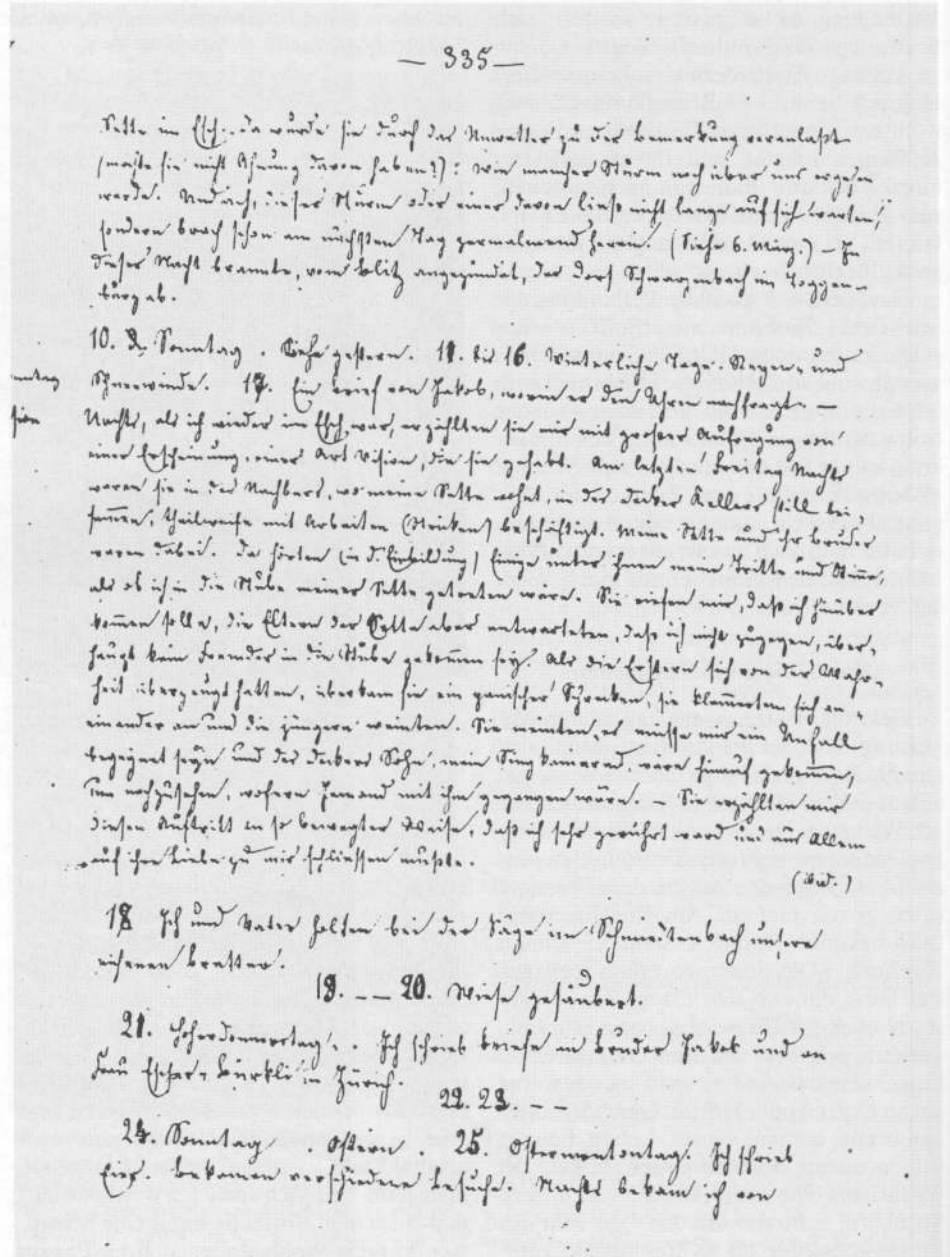 — 335 —
Sette im Esch. Da wurde sie durch das Unwetter zu der Bemerkung veranlaßt
(mochte sie nicht Ahnung davon haben?): wie mancher Sturm noch über uns ergehen
werde. Und ach, dieser Sturm oder einer davon ließ nicht lange auf sich warten,
sondern brach schon am nächsten Tag zermalmend herein. (Siehe 6. März.) – In
dieser Nacht brannte, vom Blitz angezündet, das Dorf Schwarzenbach im Toggen-
burg ab.
10. d. Sonntag. Siehe gestern. 11. bis 16. Winterliche Tage. Regen- und
Schneewinde. 17. Ein Brief von Jakob, worin er den Uhren nachfragt. –
Nachts, als ich wieder im Esch war, erzählten sie mir mit großer Aufregung von
einer Erscheinung, einer Art Vision, die sie gehabt. Am letzten Freitag Nachts
waren sie in des Nachbars, wo meine Sette wohnt, in des Decker Kellers still bei-
sammen, theilweise mit Arbeiten (Stricken) beschäftigt. Meine Sette und ihr Bruder
waren dabei. Da hörten (in d. Einbildung) Einige unter ihnen meine Tritte und Stimme,
als ob ich in die Stube meiner Sette getreten wäre. Sie riefen mir, daß ich hinüber
kommen solle, die Eltern der Sette aber antworteten, daß ich nicht zugegen, über-
haupt kein Fremder in die Stube gekommen sey. Als die Erstern sich von der Wahr-
heit überzeugt hatten, überkam sie ein panischer Schrecken, sie klammerten sich an-
einander an und die jüngern weinten. Sie meinten, es müsse mir ein Unfall
begegnet seyn und des Deckers Sohn, mein Singkamerad, wäre hinauf gekommen,
um nachzusehen, wofern Jemand mit ihm gegangen wäre. – Sie erzählten mir
diesen Auftritt in so bewegter Weise, daß ich sehr gerührt ward und aus Allem
auf ihre Liebe zu mir schliessen mußte.
18 Ich und Vater holten bei der Säge im Schmittenbach unsere
eichenen Bretter.
19. – – 20. Wiese gesäubert.
21. Hoherdonnerstag. . Ich schrieb Briefe an Bruder Jakob und an
Frau Escher-Bürkli in Zürich.
22. 23. – –
24. Sonntag. Ostern. 25. Ostermontag. Ich schrieb
Eins. Bekamen verschiedene Besuche. Nachts bekam ich von